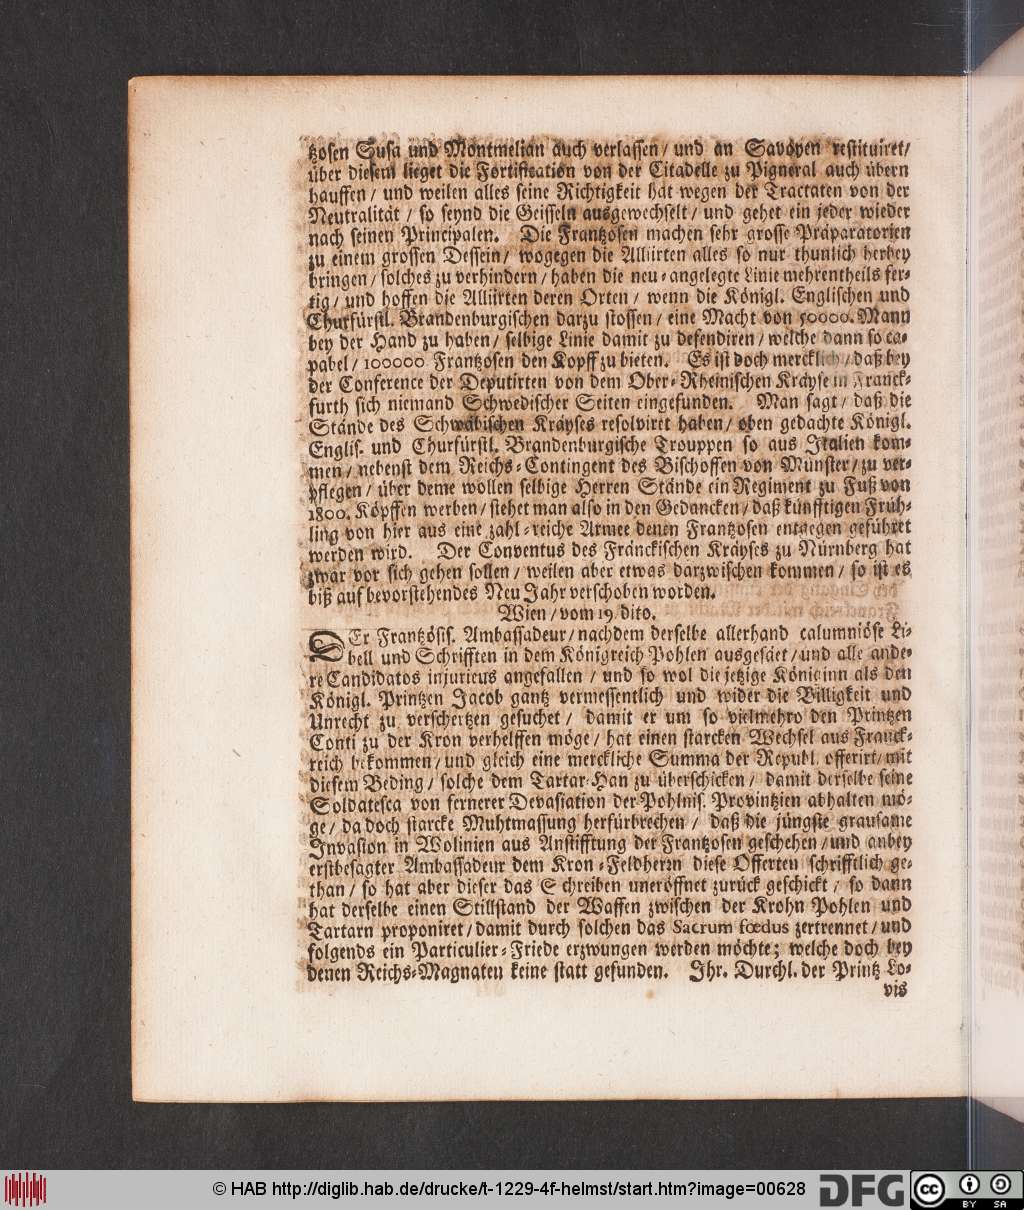 tzosen Susa und Montmelian auch verlassen / und an Savoyen restituiret /
über diesem lieget die Fortification von der Citadelle zu Pigneral auch übern
hauffen / und weilen alles seine Richtigkeit hat wegen der Tractaten von der
Neutralität / so seynd die Geisseln ausgewechselt / und gehet ein jeder wieder
nach seinen Principalen. Die Frantzosen machen sehr grosse Präparatorien
zu einem grossen Dessein / wogegen die Alliirten alles so nur thunlich herbey
bringen / solches zu verhindern / haben die neu-angelegte Linie mehrentheils fer-
tig / und hoffen die Alliirten deren Orten / wenn die Königl. Englischen und
Churfürstl. Brandenburgischen darzu stossen / eine Macht von 50000. Mann
bey der Hand zu haben / selbige Linie damit zu defendiren / welche dann so ca-
pabel / 100000 Frantzosen den Kopff zu bieten. Es ist doch mercklich / daß bey
der Conference der Deputirten von dem Ober-Rheinischen Kräyse in Franck-
furth sich niemand Schwedischer Seiten eingefunden. Man sagt / daß die
Stände des Schwäbischen Kräyses resolviret haben / oben gedachte Königl.
Englis. und Churfürstl. Brandenburgische Trouppen so aus Italien kom-
men / nebenst dem Reichs-Contingent des Bischoffen von Münster / zu ver-
pflegen / über deme wollen selbige Herren Stände ein Regiment zu Fuß von
1800. Köpffen werben / stehet man also in den Gedancken / daß künfftigen Früh-
ling von hier aus eine zahl-reiche Armee denen Frantzosen entgegen geführet
werden wird. Der Conventus des Fränckischen Kräyses zu Nürnberg hat
zwar vor sich gehen sollen / weilen aber etwas darzwischen kommen / so ist es
biß auf bevorstehendes Neu Jahr verschoben worden.
Wien / vom 19. dito.
DEr Frantzösis. Ambassadeur / nachdem derselbe allerhand calumniöse Li-
bell und Schrifften in dem Königreich Pohlen ausgesäet / und alle ande-
re Candidatos injurieus angefallen / und so wol die jetzige Königinn als den
Königl. Printzen Jacob gantz vermessentlich und wider die Billigkeit und
Unrecht zu verschertzen gesuchet / damit er um so vielmehro den Printzen
Conti zu der Kron verhelffen möge / hat einen starcken Wechsel aus Franck-
reich bekommen / und gleich eine merckliche Summa der Republ. offerirt / mit
diesem Beding / solche dem Tartar-Han zu überschicken / damit derselbe seine
Soldatesca von fernerer Devastation der Pohlnis. Provintzien abhalten mö-
ge / da doch starcke Muhtmassung herfürbrechen / daß die jüngste grausame
Invasion in Wolinien aus Anstifftung der Frantzosen geschehen / und anbey
erstbesagter Ambassadeur dem Kron-Feldherrn diese Offerten schrifftlich ge-
than / so hat aber dieser das Schreiben uneröffnet zurück geschickt / so dann
hat derselbe einen Stillstand der Waffen zwischen der Krohn Pohlen und
Tartarn proponiret / damit durch solchen das Sacrum fœdus zertrennet / und
folgends ein Particulier-Friede erzwungen werden möchte; welche doch bey
denen Reichs-Magnaten keine statt gefunden. Ihr. Durchl. der Printz Lo-
vis
© HAB http://diglib.hab.de/drucke/t-1229-4f-helmst/start.htm?image=00628
DFG
cc BY SA